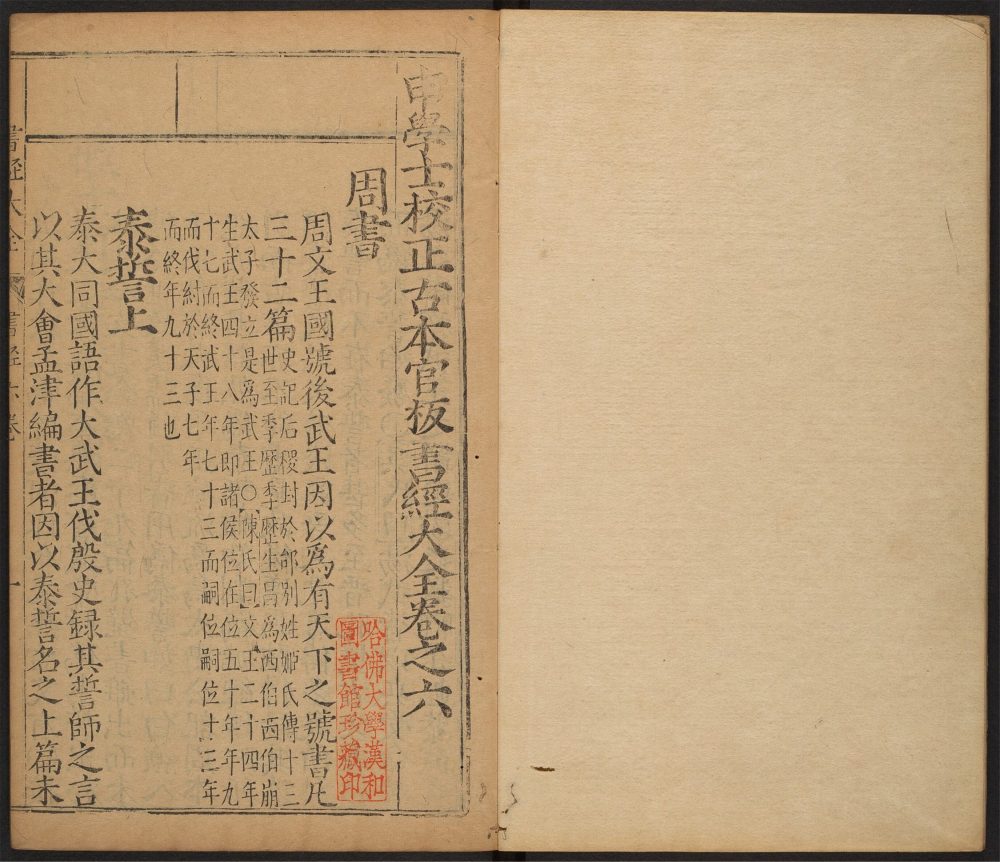 申學士校正古本官板書經大全卷之六
哈佛大學漢和
圖書館珍藏印
周書
周文王國號後武王因以爲有天下之號書凡
三十二篇
史記后稷封於邰別姓姬氏傳十三
世至季歷季歷生昌爲西伯西伯崩
太子發立是爲武王〇陳氏曰文王二十四年
生武王四十八年即諸侯位在位五十年年九
十七而終武王年七十三而嗣位嗣位十三年
而伐紂於天子七年
而終年九十三也
泰誓上
泰大同國語作大武王伐殷史録其誓師之言
以其大會孟津編書者因以泰誓名之上篇未
書經大全
書經六卷
一